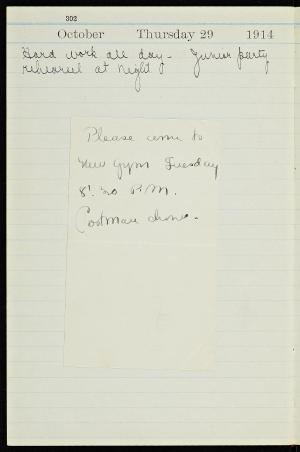 302
October Thursday 29 1914
Hard work all day - Junior party
rehearsal at night
Please come to
New Gym Tuesday
8:30 P.M.